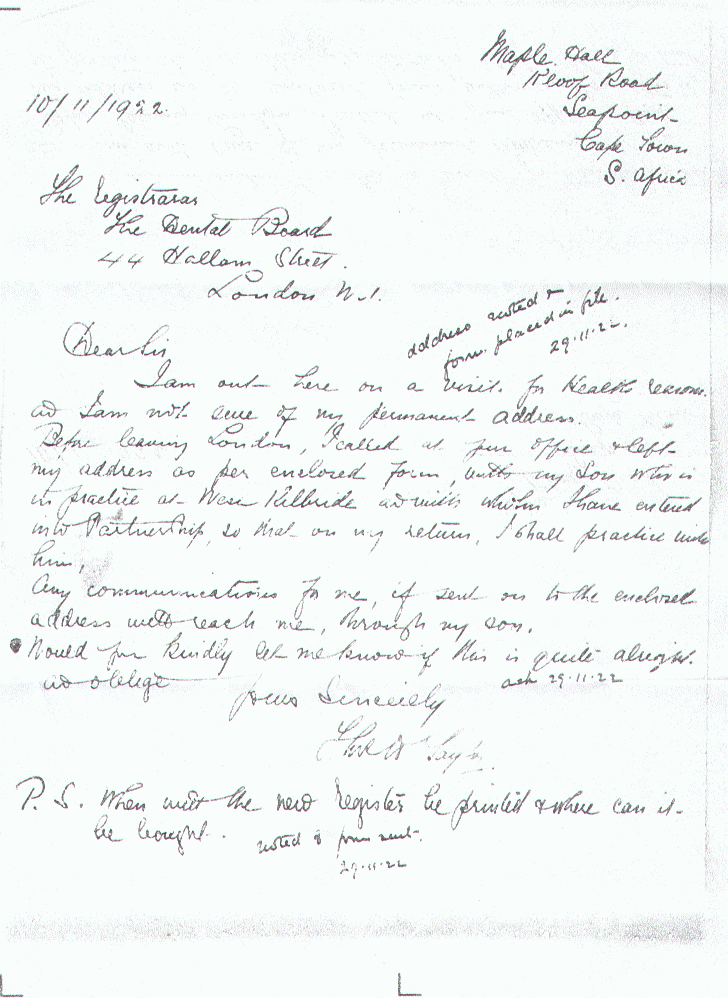 Maple Hall
Kloof Road
Seapoint
Cape Town
S. Africa
10/11/1922
The Registraras
The Dental Board
44 Hallam Street.
London W.1.
address noted &
form placed in file.
29.11.22.
Dear Sir
I am out here on a visit for Health reasons.
ad I am not sure of my permanent address.
Before leaving London, I called at your Office & left
my address as per enclosed form, with my Son who is
in practice at West Kilbride ad with whom I have entered
into Partnership, so that on my return, I shall practice with
him,
Any communications for me, if sent on to the enclosed
address will reach me, through my son.
Would you kindly let me know if this is quite alright.
ad oblige
ack 29.11.22
Yours Sincerely
Taylor
P. S. When will the new Register be printed & where can it
be bought.
noted & form sent.
29.11.22